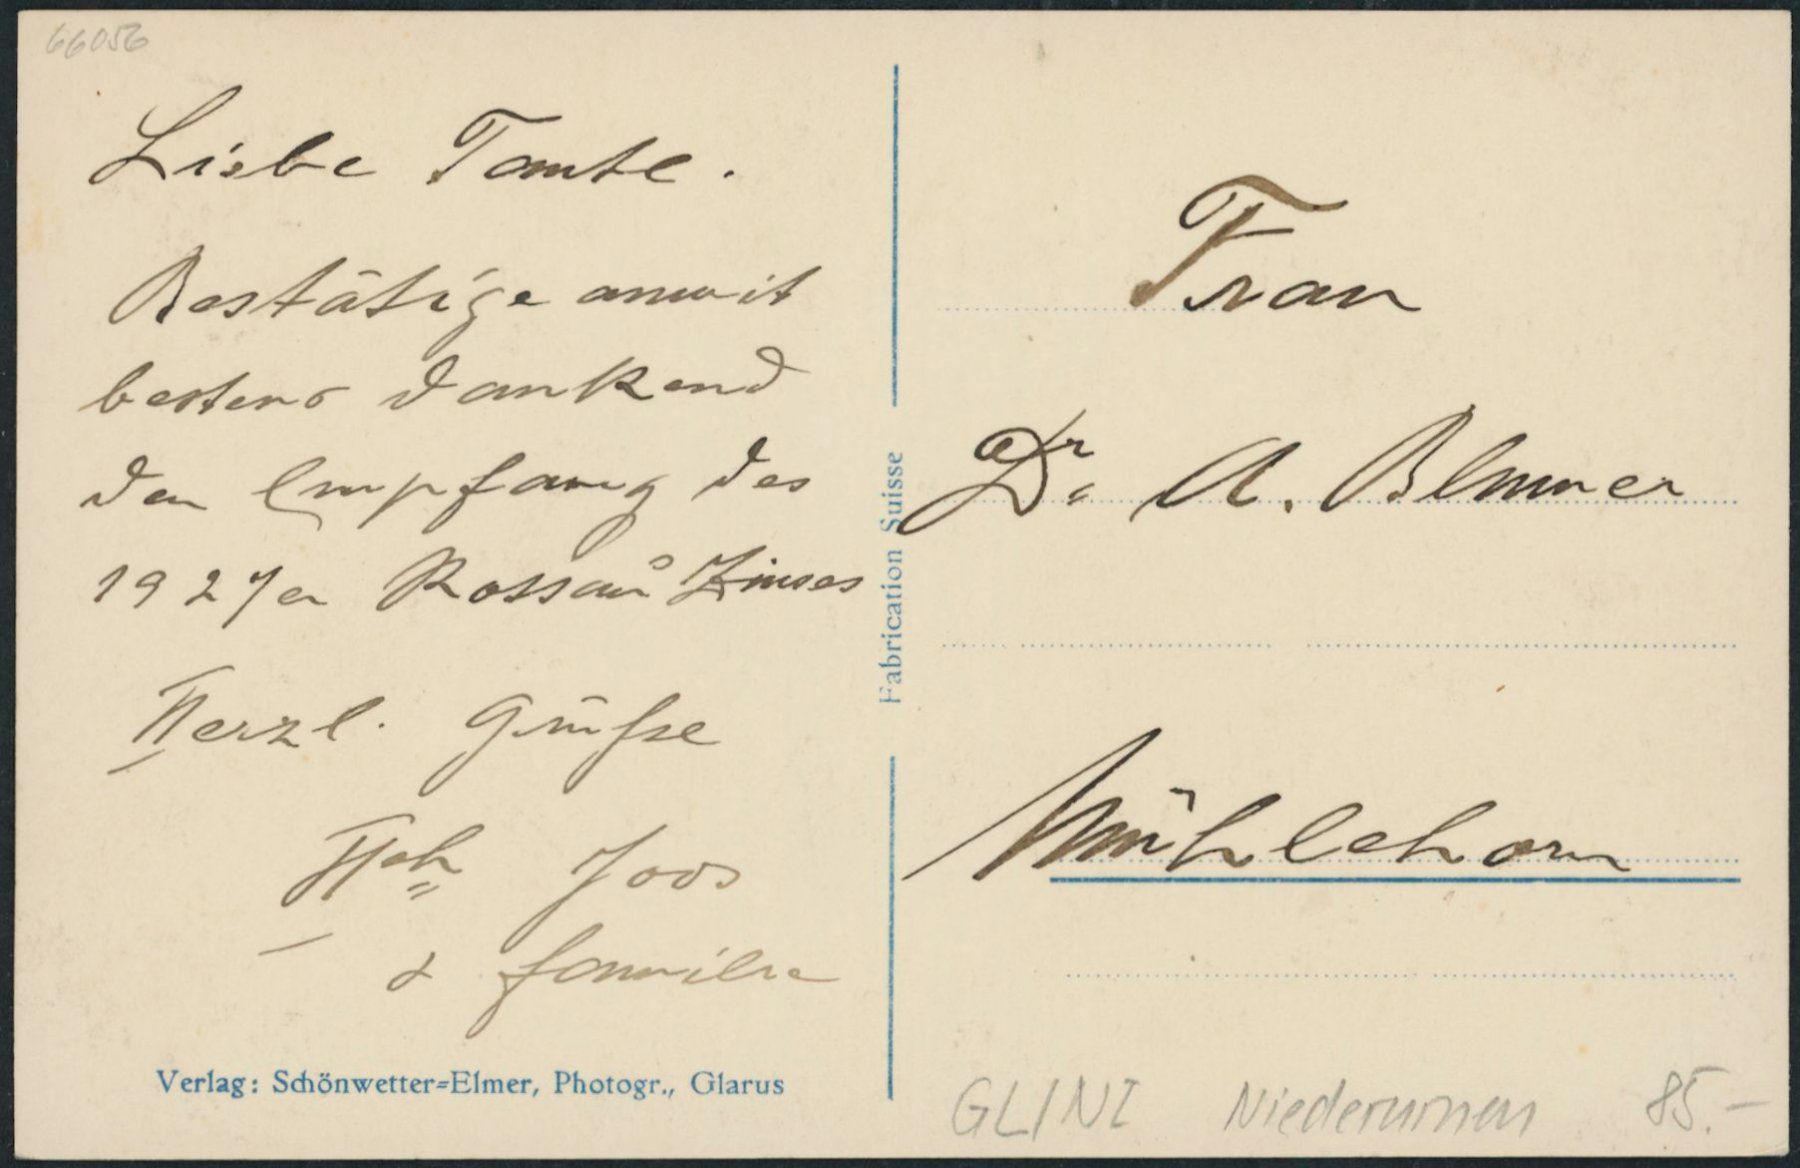 66056
Liebe Tante.
Bestätige anmit
bestens dankend
den Empfang des
1927er Rossau Zinses
Herzl. Grüße
Hch Joos
& Familie
Verlag: Schönwetter=Elmer, Photogr., Glarus
Fabrication Suisse
Frau
Dr. A. Blumer
Mühlehorn
GL/NI Niederurnen 85.-